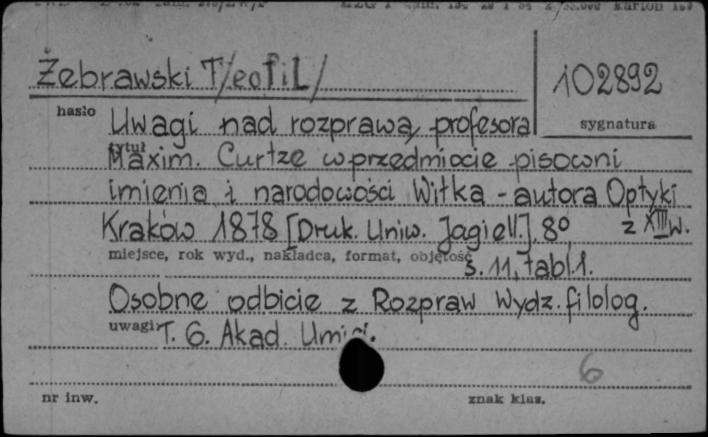 Żebrawski T/eofil/
102892
hasło
sygnatura
Uwagi nad rozprawą profesora
tytuł
Maxim. Curtze w przedmiocie pisowni
imienia i narodowości Witka - autora Optyki
z XIII w.
Kraków 1878 [Druk. Uniw. Jagiell.], 8°
miejsce, rok wyd., nakładca, format, objętość
s. 11, tabl. 1.
Osobne odbicie z Rozpraw Wydz. filolog.
uwagi
T. 6. Akad. Umiej.
6
nr inw.
znak klas.